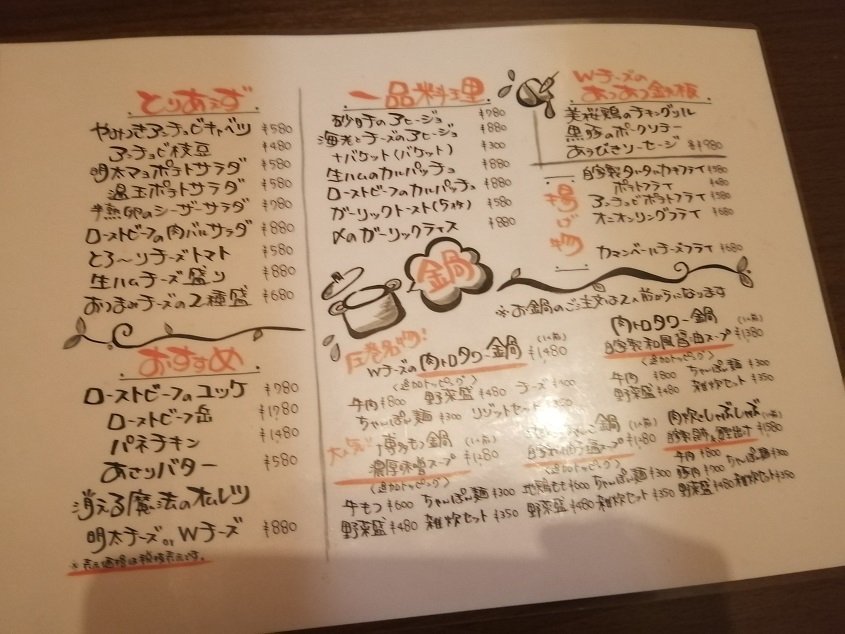 とりあえず
やみつきアンチョビキャベツ ¥580
アンチョビ枝豆 ¥480
明太マヨポテトサラダ ¥580
温玉ポテトサラダ ¥580
半熟卵のシーザーサラダ ¥780
ローストビーフの肉バルサラダ ¥880
とろ〜りチーズトマト ¥580
生ハムチーズ盛り ¥880
おつまみチーズの2種盛 ¥680
おすすめ
ローストビーフのユッケ ¥780
ローストビーフ岳 ¥1,780
パネチキン ¥1,480
あさりバター ¥580
消える魔法のオムレツ
明太チーズ or Wチーズ ¥880
※表示価格は税抜表示です。
一品料理
砂ずりのアヒージョ ¥780
海老とチーズのアヒージョ ¥880
+バケット(バケット) ¥300
生ハムのカルパッチョ ¥880
ローストビーフのカルパッチョ ¥880
ガーリックトースト(5枚) ¥580
〆のガーリックライス ¥880
Wチーズの
あつあつ鉄板
美桜鶏のチキングリル
黒豚のポークソテー
あらびきソーセージ ¥980
揚げ物
自家製タルタルカキフライ ¥580
ポテトフライ ¥480
アンチョビポテトフライ ¥580
オニオンリングフライ ¥680
カマンベールチーズフライ ¥680
鍋
※お鍋のご注文は2人前からになります
圧巻名物!
Wチーズの肉トロタワー鍋 (1人前) ¥1,480
(追加トッピング)
牛肉 ¥800 野菜盛 ¥480 チーズ ¥400
ちゃんぽん麺 ¥300 リゾットセット ¥350
肉トロタワー鍋 (1人前)
自家製和風醤油スープ ¥1,380
(追加トッピング)
牛肉 ¥800 ちゃんぽん麺 ¥300
野菜盛 ¥480 雑炊セット ¥350
大人気!
博多もつ鍋 (1人前)
濃厚味噌スープ ¥1,480
(追加トッピング)
牛もつ ¥600 ちゃんぽん麺 ¥300
野菜盛 ¥480 雑炊セット ¥350
鍋 (1人前)
スープ ¥1,480
(追加トッピング)
地鶏もも ¥600 ちゃんぽん麺 ¥300
野菜盛 ¥480 雑炊セット ¥350
肉炊きしゃぶしゃぶ (1人前)
¥1,580
牛肉 ¥800 ちゃんぽん麺 ¥300
豚肉 ¥700 雑炊セット ¥350
野菜盛 ¥480